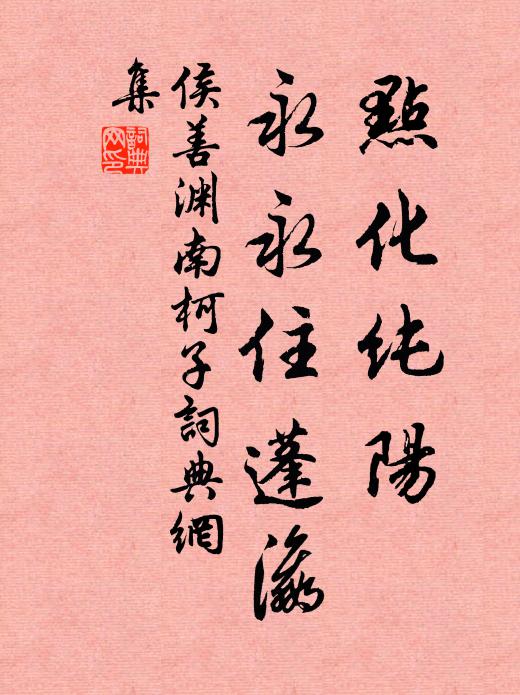 點化纯陽
永永住蓬瀛
侯善渊南柯子詞典網
集
詞典網印